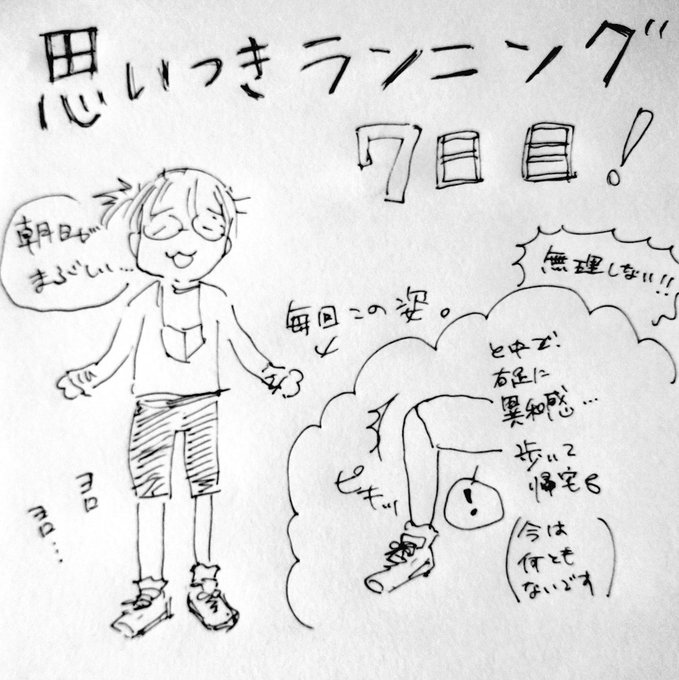 思いつきランニング
7日目!
朝日が
まぶしい…
毎回この姿。
無理しない!!
と中で
右足に
異和感…
歩いて
帰宅
ピキッ
!
(今は
何とも
ないです)
ヨロ
ヨロ…